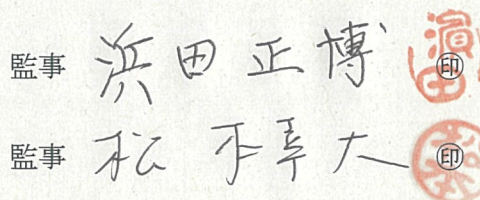 監事 浜田正博 ㊞
監事 松 大 ㊞